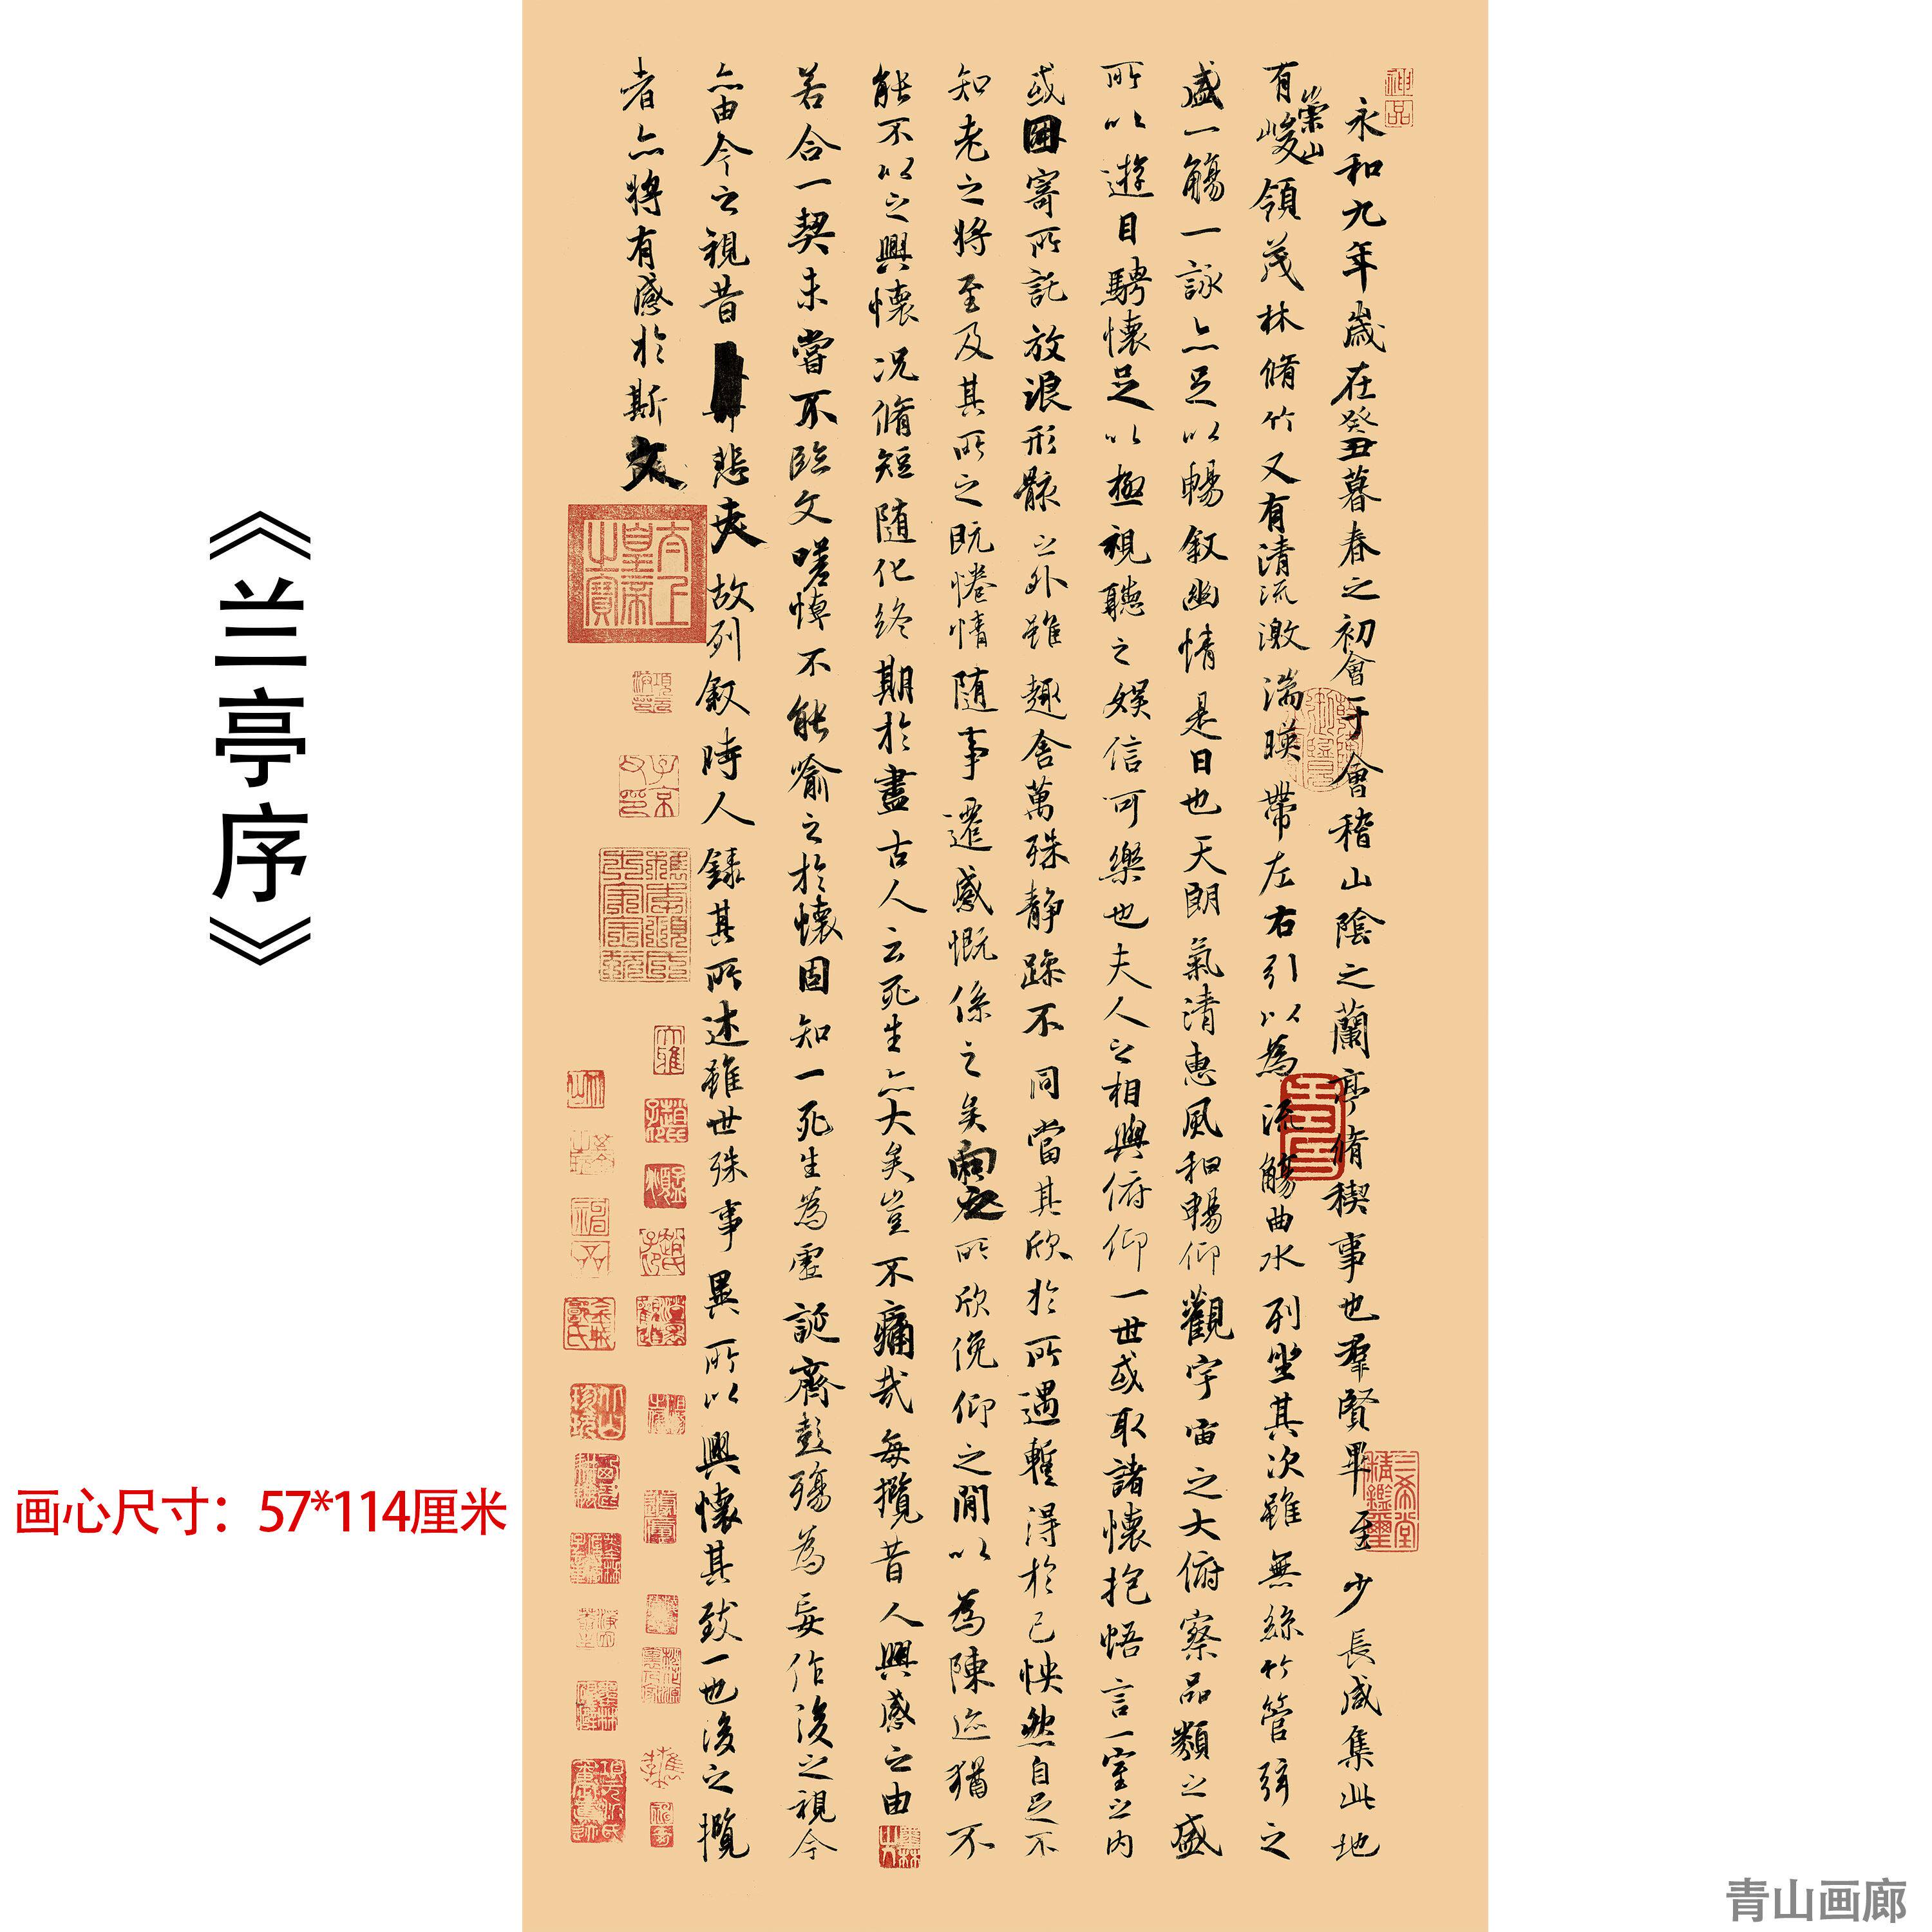 《兰亭序》
画心尺寸：57*114厘米
神品
永和九年歲在癸丑暮春之初會于會稽山陰之蘭亭脩稧事也群賢畢至少長咸集此地
有崇山峻領茂林脩竹又有清流激湍暎帶左右引以為流觴曲水列坐其次雖無絲竹管弦之
盛一觴一詠亦足以暢敘幽情是日也天朗氣清惠風和暢仰觀宇宙之大俯察品類之盛
所以遊目騁懷足以極視聽之娛信可樂也夫人之相與俯仰一世或取諸懷抱悟言一室之內
或因寄所託放浪形骸之外雖趣舍萬殊靜躁不同當其欣於所遇暫得於己怏然自足不
知老之將至及其所之既惓情隨事遷感慨係之矣向之所欣俛仰之閒以為陳迹猶不
能不以之興懷況脩短隨化終期於盡古人云死生亦大矣豈不痛哉每攬昔人興感之由
若合一契未嘗不臨文嗟悼不能喻之於懷固知一死生為虛誕齊彭殤為妄作後之視今
亦由今之視昔悲夫故列敘時人錄其所述雖世殊事異所以興懷其致一也後之攬
者亦將有感於斯文
三希堂精鑑璽
太上皇帝之寶
子京父印
青山画廊